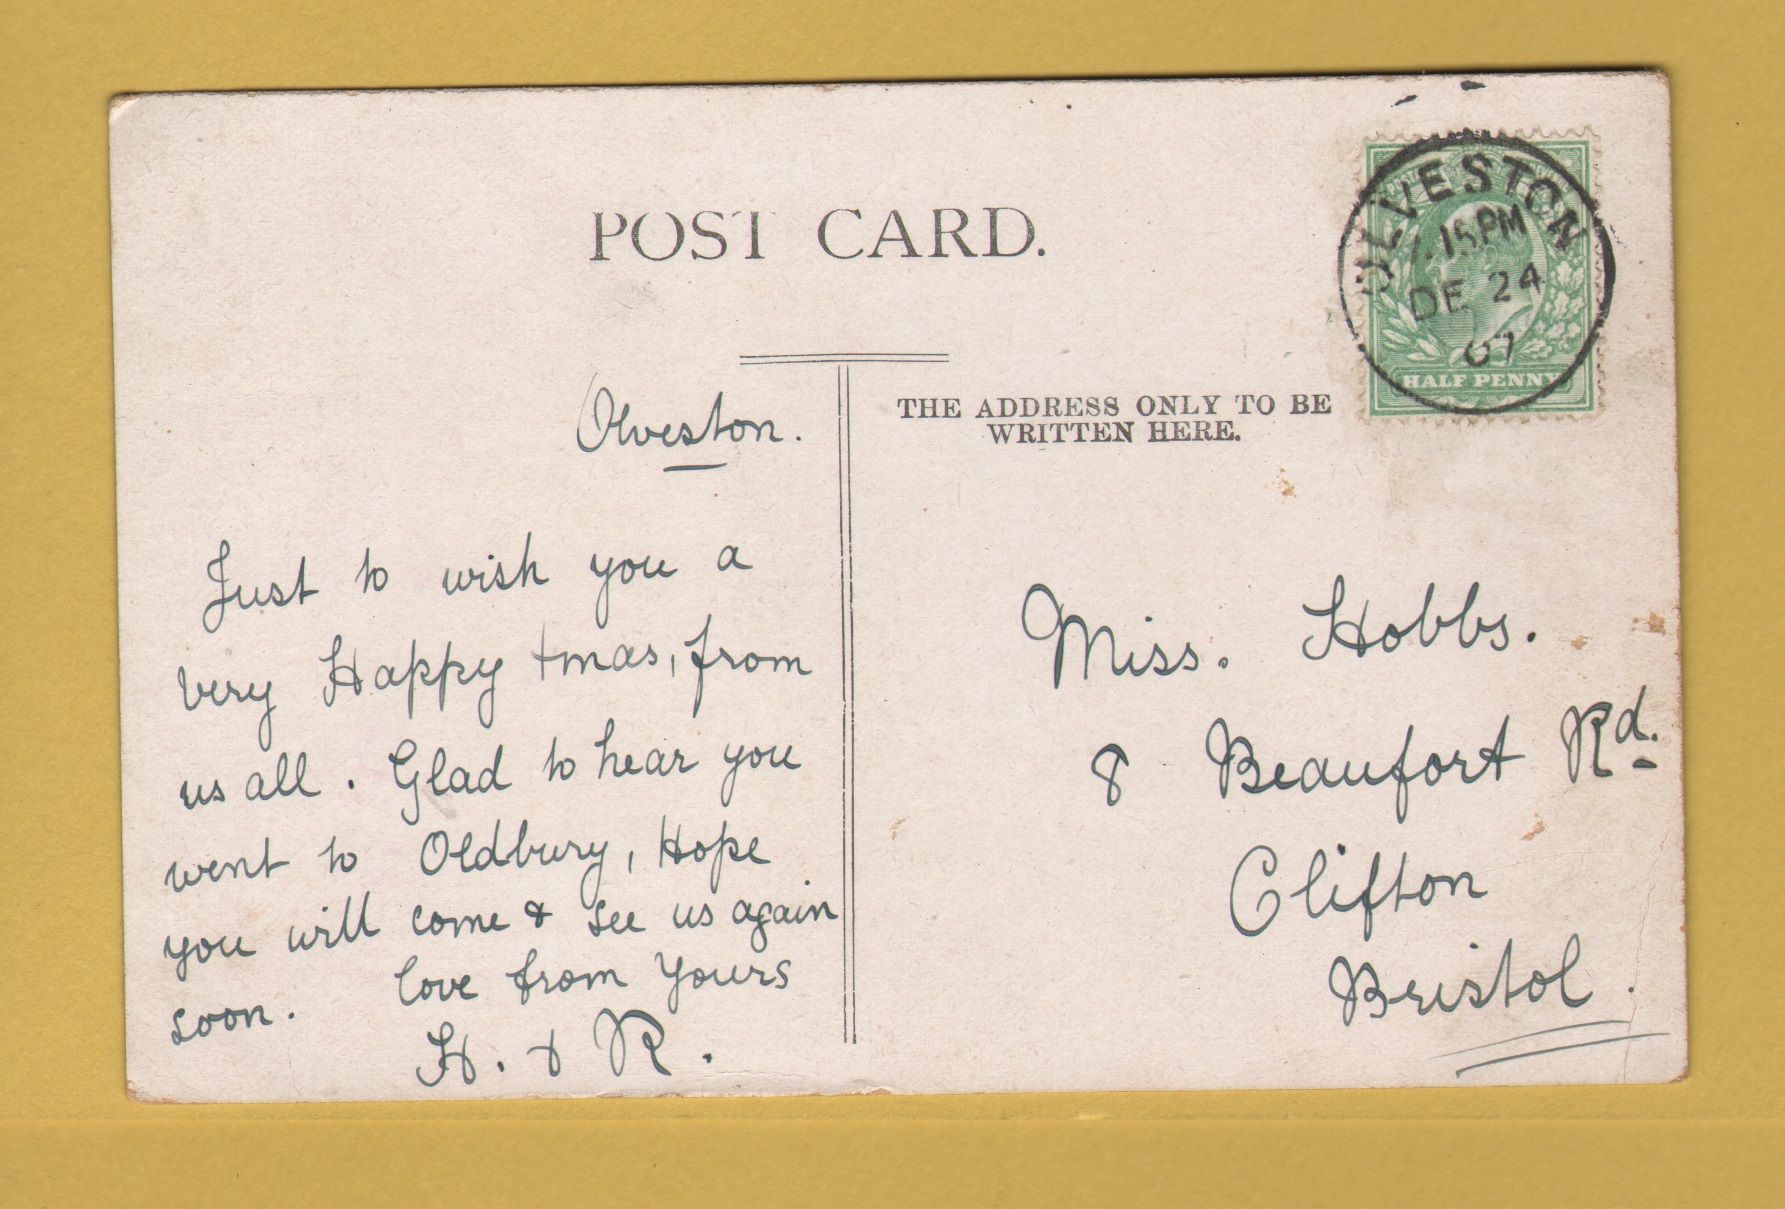 POST CARD.
THE ADDRESS ONLY TO BE
WRITTEN HERE.
OLVESTON
.15 PM
DE 24
07
HALF PENNY
Olveston.
Just to wish you a
very Happy Xmas, from
us all. Glad to hear you
went to Oldbury, Hope
you will come & see us again
soon. love from Yours
H. & R.
Miss. Hobbs.
8 Beaufort Rd.
Clifton
Bristol.